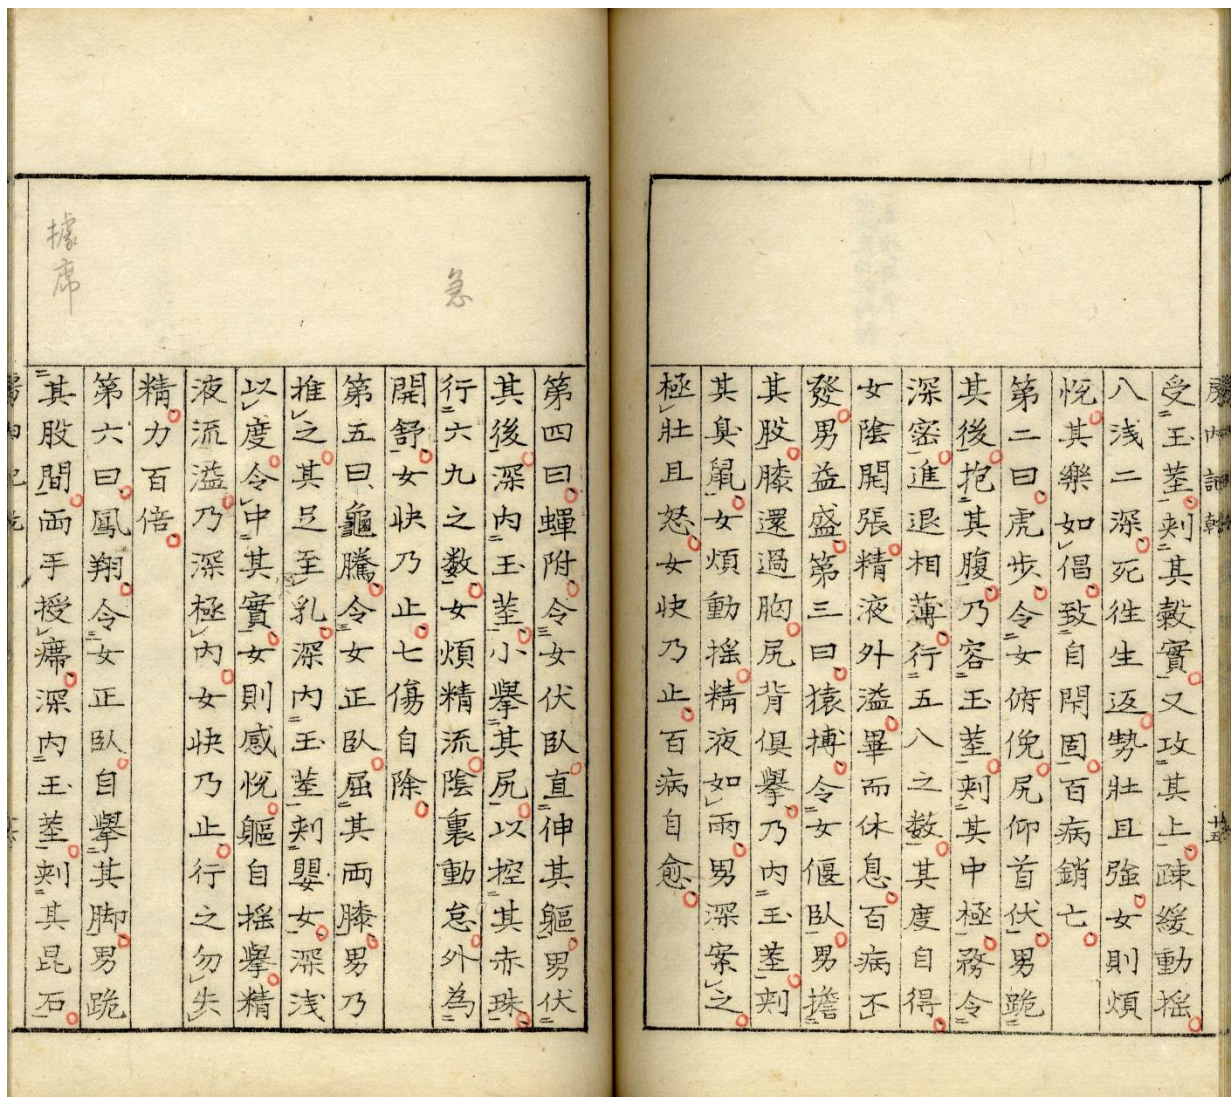 受玉莖刾其糓實又攻其上踈緩動揺
八浅二深死徃生返勢壯且強女則煩
悦其樂如倡致自閇固百病銷亡
第二曰虎歩令女俯俛尻仰首伏男跪
其後抱其腹乃容玉莖刾其中極務令
深宻進退相薄行五八之數其度自得
女陰閇張精液外溢畢而休息百病不
發男益盛第三曰猿搏令女偃臥男擔
其股膝還過胸尻背俱擧乃内玉莖刾
其臭鼠女煩動揺精液如雨男深案之
極壯且怒女快乃止百病自愈
急
第四曰蟬附令女伏臥直伸其軀男伏
其後深内玉莖小擧其尻以控其赤珠
行六九之數女煩精流陰裏動怠外為
開舒女快乃止七傷自除
第五曰龜騰令女正臥屈其兩膝男乃
推之其足至乳深内玉莖刾嬰女深浅
以度令中其實女則感悦軀自揺擧精
液流溢乃深極内女快乃止行之勿失
精力百倍
據席
第六曰鳳翔令女正臥自擧其脚男跪
其股間兩手授席深内玉莖刾其昆石